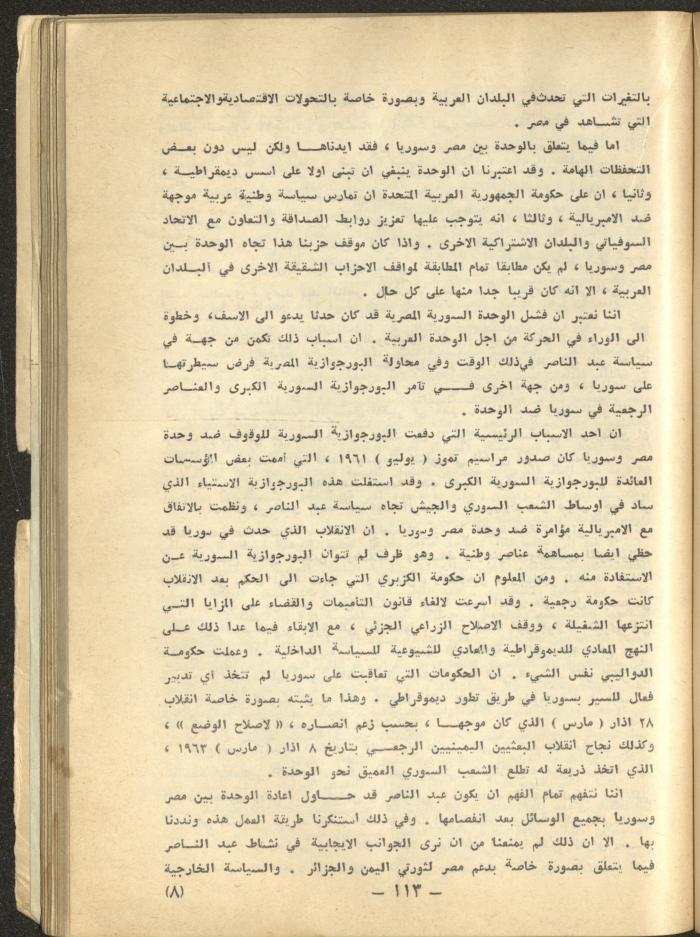 بالتغيرات التي تحدث في البلدان العربية وبصورة خاصة بالتحولات الاقتصادية والاجتماعية
التي تشاهد في مصر .
اما فيما يتعلق بالوحدة بين مصر وسوريا ، فقد ايدناها ولكن ليس دون بعض
التحفظات الهامة . وقد اعتبرنا ان الوحدة ينبغي ان تبنى اولا على اسس ديمقراطية ،
وثانيا ، ان على حكومة الجمهورية العربية المتحدة ان تمارس سياسة وطنية عربية موجهة
ضد الامبريالية ، وثالثا ، انه يتوجب عليها تعزيز روابط الصداقة والتعاون مع الاتحاد
السوفياتي والبلدان الاشتراكية الاخرى . واذا كان موقف حزبنا هذا تجاه الوحدة بين
مصر وسوريا ، لم يكن مطابقا تمام المطابقة لمواقف الاحزاب الشقيقة الاخرى في البلدان
العربية ، الا انه كان قريبا جدا منها على كل حال .
اننا نعتبر ان فشل الوحدة السورية المصرية قد كان حدثا يدعو الى الاسف، وخطوة
الى الوراء في الحركة من اجل الوحدة العربية . ان اسباب ذلك تكمن من جهة في
سياسة عبد الناصر في ذلك الوقت وفي محاولة البورجوازية المصرية فرض سيطرتها
على سوريا ، ومن جهة اخرى في تآمر البورجوازية السورية الكبرى والعناصر
الرجعية في سوريا ضد الوحدة .
ان احد الاسباب الرئيسية التي دفعت البورجوازية السورية للوقوف ضد وحدة
مصر وسوريا كان صدور مراسيم تموز ( يوليو ) ١٩٦١ ، التي أممت بعض المؤسسات
العائدة للبورجوازية السورية الكبرى . وقد استغلت هذه البورجوازية الاستياء الذي
ساد في اوساط الشعب السوري والجيش تجاه سياسة عبد الناصر ، ونظمت بالاتفاق
مع الامبريالية مؤامرة ضد وحدة مصر وسوريا . ان الانقلاب الذي حدث في سوريا قد
حظي ايضا بمساهمة عناصر وطنية . وهو ظرف لم تتوان البورجوازية السورية عن
الاستفادة منه . ومن المعلوم ان حكومة الكزبري التي جاءت الى الحكم بعد الانقلاب
كانت حكومة رجعية . وقد اسرعت لالغاء قانون التأميمات والقضاء على المزايا التي
انتزعها الشغيلة ، ووقف الاصلاح الزراعي الجزئي ، مع الابقاء فيما عدا ذلك على
النهج المعادي للديموقراطية والمعادي للشيوعية للسياسة الداخلية . وعملت حكومة
الدواليبي نفس الشيء . ان الحكومات التي تعاقبت على سوريا لم تتخذ أي تدبير
فعال للسير بسوريا في طريق تطور ديموقراطي . وهذا ما يثبته بصورة خاصة انقلاب
٢٨ اذار ( مارس ) الذي كان موجها ، بحسب زعم انصاره ، « لاصلاح الوضع » ،
وكذلك نجاح انقلاب البعثيين اليمينيين الرجعي بتاريخ ٨ اذار ( مارس ) ١٩٦٣ ،
الذي اتخذ ذريعة له تطلع الشعب السوري العميق نحو الوحدة .
اننا نتفهم تمام الفهم ان يكون عبد الناصر قد حاول اعادة الوحدة بين مصر
وسوريا بجميع الوسائل بعد انفصامها . وفي ذلك استنكرنا طريقة العمل هذه ونددنا
بها . الا ان ذلك لم يمنعنا من ان نرى الجوانب الايجابية في نشاط عبد الناصر
فيما يتعلق بصورة خاصة بدعم مصر لثورتي اليمن والجزائر . والسياسة الخارجية
– ١١٣ –
(٨)